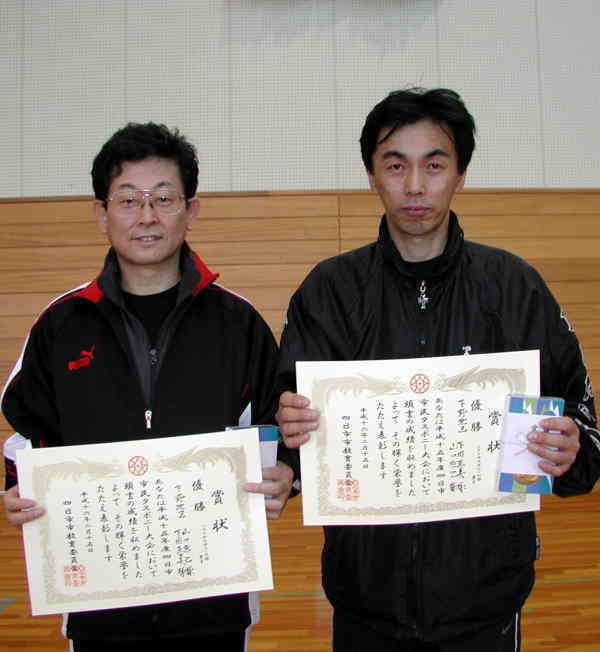 賞状
優勝
あなたは平成十五年度四日市
市民スポーツ大会において
頭書の成績を収めました
よって その輝く栄誉を
たたえ表彰します
平成十六年二月十五日
四日市市教育委員会
賞状
優勝
あなたは平成十五年度四日市
市民スポーツ大会において
頭書の成績を収めました
よって その輝く栄誉を
たたえ表彰します
平成十六年二月十五日
四日市市教育委員会